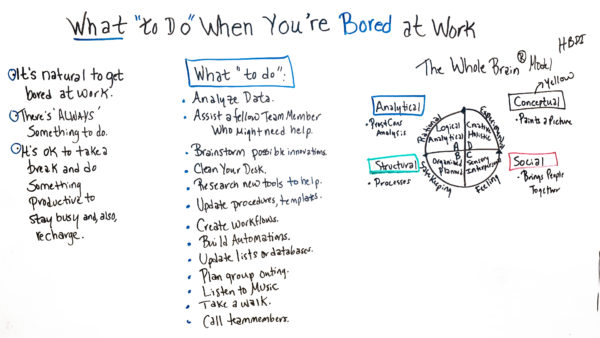 What "to Do" When You're Bored at Work
It's natural to get
bored at work.
There's 'ALWAYS'
Something to do.
It's ok to take a
break and do
Something
Productive to
Stay busy and, also,
recharge.
What "to do":
• Analyze Data.
• Assist a fellow Team Member
Who Might need help.
• Brainstorm possible innovations.
• Clean Your Desk.
• Research new tools to help.
• Update procedures, templates.
• Create Workflows.
• Build Automations.
• Update lists or databases.
• Plan group outing.
• Listen to Music
• Take a walk.
• Call team members.
HBDI
The Whole Brain® Model
Yellow
Analytical
• Pros & Cons
Analysis
Structural
• Processes
Rational
Experimental
Safekeeping
Feeling
Logical
Analytical
A
Creative
Holistic
D
B
Organized
Planned
C
Sensory
Interpersonal
Conceptual
• Paints a Picture
Social
• Brings People
Together